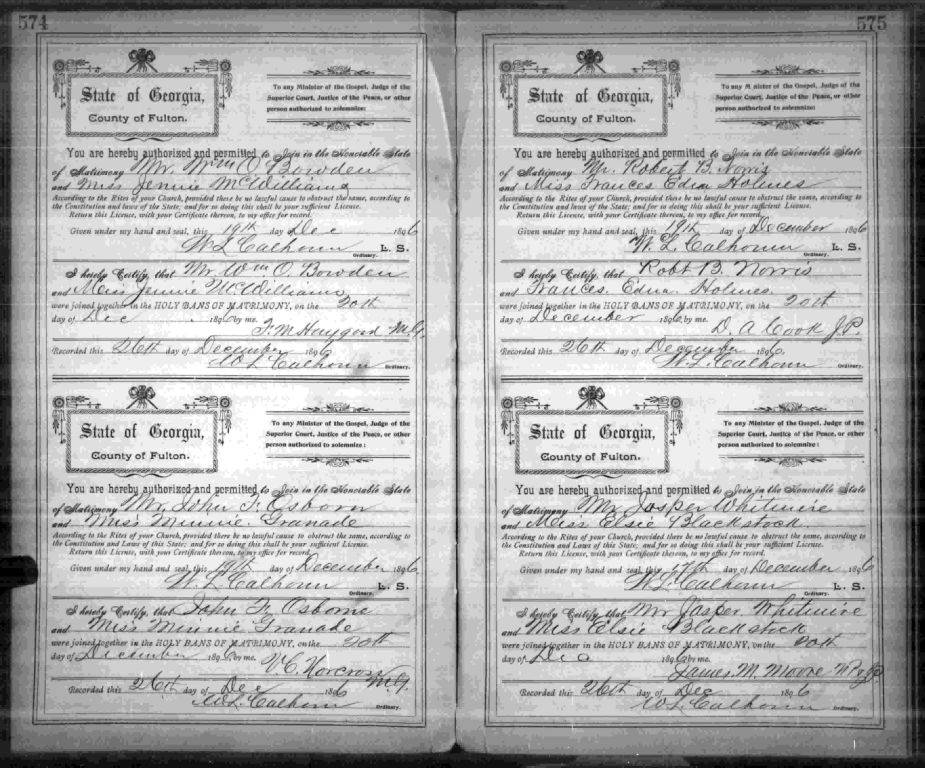 574
State of Georgia,
County of Fulton.
To any Minister of the Gospel, Judge of the
Superior Court, Justice of the Peace, or other
person authorized to solemnize:
You are hereby authorized and permitted to Join in the Honorable State
of Matrimony Mr. Wm O. Bowden
and Miss Jennie McWilliams
According to the Rites of your Church, provided there be no lawful cause to obstruct the same, according to
the Constitution and laws of the State; and for so doing this shall be your sufficient License.
Return this License, with your Certificate thereon, to my office for record.
Given under my hand and seal, this 19th day of Dec 1896
W L Calhoun L. S.
Ordinary.
I hereby Certify, that Mr Wm O. Bowden
and Miss Jennie McWilliams
were joined together in the HOLY BANS OF MATRIMONY, on the 20th
day of Dec 1896 by me.
M.G.
Recorded this 26th day of December 1896
W L Calhoun Ordinary.
State of Georgia,
County of Fulton.
To any Minister of the Gospel, Judge of the
Superior Court, Justice of the Peace, or other
person authorized to solemnize:
You are hereby authorized and permitted to Join in the Honorable State
of Matrimony Mr. John F. Osborn
and Miss Minnie Granade
According to the Rites of your Church, provided there be no lawful cause to obstruct the same, according to
the Constitution and Laws of this State; and for so doing this shall be your sufficient License.
Return this License, with your Certificate thereon, to my office for record.
Given under my hand and seal, this 19th day of December 1896
W L Calhoun L. S.
Ordinary.
I hereby Certify, that John F. Osborne
and Miss Minnie Granade
were joined together in the HOLY BANS OF MATRIMONY, on the 20th
day of December 1896 by me.
V. C. Norcross M.G.
Recorded this 26th day of Dec 1896
W L Calhoun Ordinary.
575
State of Georgia,
County of Fulton.
To any Minister of the Gospel, Judge of the
Superior Court, Justice of the Peace, or other
person authorized to solemnize:
You are hereby authorized and permitted to Join in the Honorable State
of Matrimony Mr. Robert B. Norris
and Miss Frances Edna Holmes
According to the Rites of your Church, provided there be no lawful cause to obstruct the same, according to
the Constitution and laws of the State; and for so doing this shall be your sufficient License.
Return this License, with your Certificate thereon, to my office for record.
Given under my hand and seal, this 19th day of December 1896
W. L. Calhoun L. S.
Ordinary.
I hereby Certify, that Robt B. Norris
and Frances Edna Holmes
were joined together in the HOLY BANS OF MATRIMONY, on the 20th
day of December 1896 by me.
D. A. Cook J.P.
Recorded this 26th day of December 1896
W L Calhoun Ordinary.
State of Georgia,
County of Fulton.
To any Minister of the Gospel, Judge of the
Superior Court, Justice of the Peace, or other
person authorized to solemnize:
You are hereby authorized and permitted to Join in the Honorable State
of Matrimony Mr Jasper Whitmire
and Miss Elsie Blackstock
According to the Rites of your Church, provided there be no lawful cause to obstruct the same, according to
the Constitution and Laws of this State; and for so doing this shall be your sufficient License.
Return this License, with your Certificate thereon, to my office for record.
Given under my hand and seal, this 17th day of December 1896
W L Calhoun L. S.
Ordinary.
I hereby Certify, that Mr Jasper Whitmire
and Miss Elsie Blackstock
were joined together in the HOLY BANS OF MATRIMONY, on the 20th
day of Dec 1896 by me.
James M. Moore
Recorded this 26th day of Dec 1896
W L Calhoun Ordinary.